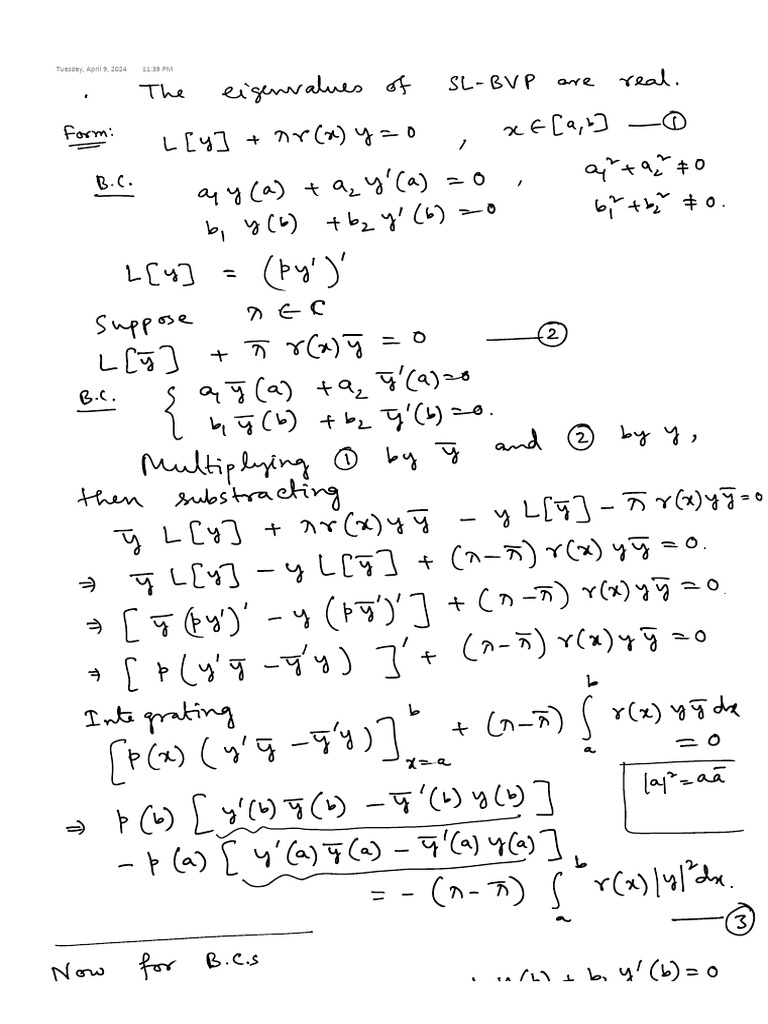 Tuesday, April 9, 2024 11:39 PM
. The eigenvalues of SL-BVP are real.
Form: L[y] + λr(x) y = 0 , x ∈ [a,b] — ①
B.C. a₁ y(a) + a₂ y'(a) = 0 , a₁² + a₂² ≠ 0
b₁ y(b) + b₂ y'(b) = 0 b₁² + b₂² ≠ 0.
L[y] = (py')'
Suppose λ ∈ C
L[ȳ] + λ̄ r(x) ȳ = 0 — ②
B.C. { a₁ ȳ(a) + a₂ ȳ'(a) = 0
b₁ ȳ(b) + b₂ ȳ'(b) = 0.
Multiplying ① by ȳ and ② by y,
then substracting
ȳ L[y] + λr(x) y ȳ - y L[ȳ] - λ̄ r(x) y ȳ = 0
⇒ ȳ L[y] - y L[ȳ] + (λ-λ̄) r(x) y ȳ = 0.
⇒ [ ȳ (py')' - y (pȳ')' ] + (λ-λ̄) r(x) y ȳ = 0.
⇒ [ p (y'ȳ - ȳ'y) ]' + (λ-λ̄) r(x) y ȳ = 0
Integrating
[p(x) (y'ȳ - ȳ'y)]_{x=a}^{b} + (λ-λ̄) ∫_a^b r(x) y ȳ dx
= 0
|a|² = aā
⇒ p(b) [ y'(b) ȳ(b) - ȳ'(b) y(b) ]
- p(a) [ y'(a) ȳ(a) - ȳ'(a) y(a) ]
= - (λ-λ̄) ∫_a^b r(x) |y|² dx. — ③
Now for B.C.s
b₁ y(b) + b₂ y'(b) = 0